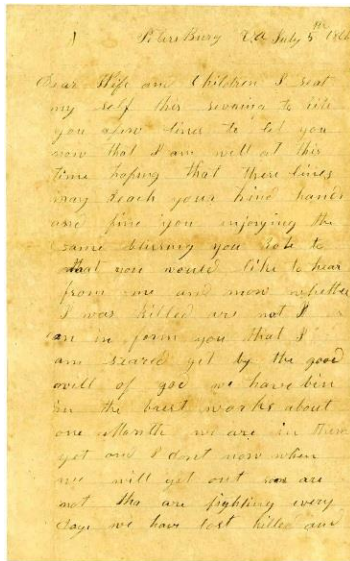 Peters Burg VA July 5th 186
Dear Wife and Children I seat
my self this evening to rite
you a few lines to let you
now that I am well at this
time hoping that these lines
may reach your kind hands
and fine you enjoying the
same blessing you rote to
that you would like to hear
from me and now whether
I was killed are not I
can in form you that I
am spared yet by the good
will of god we have bin
in the brest works about
one Month we are in them
yet and I dont now when
we will get out are
not tha are fighting every
day we have lost killed and